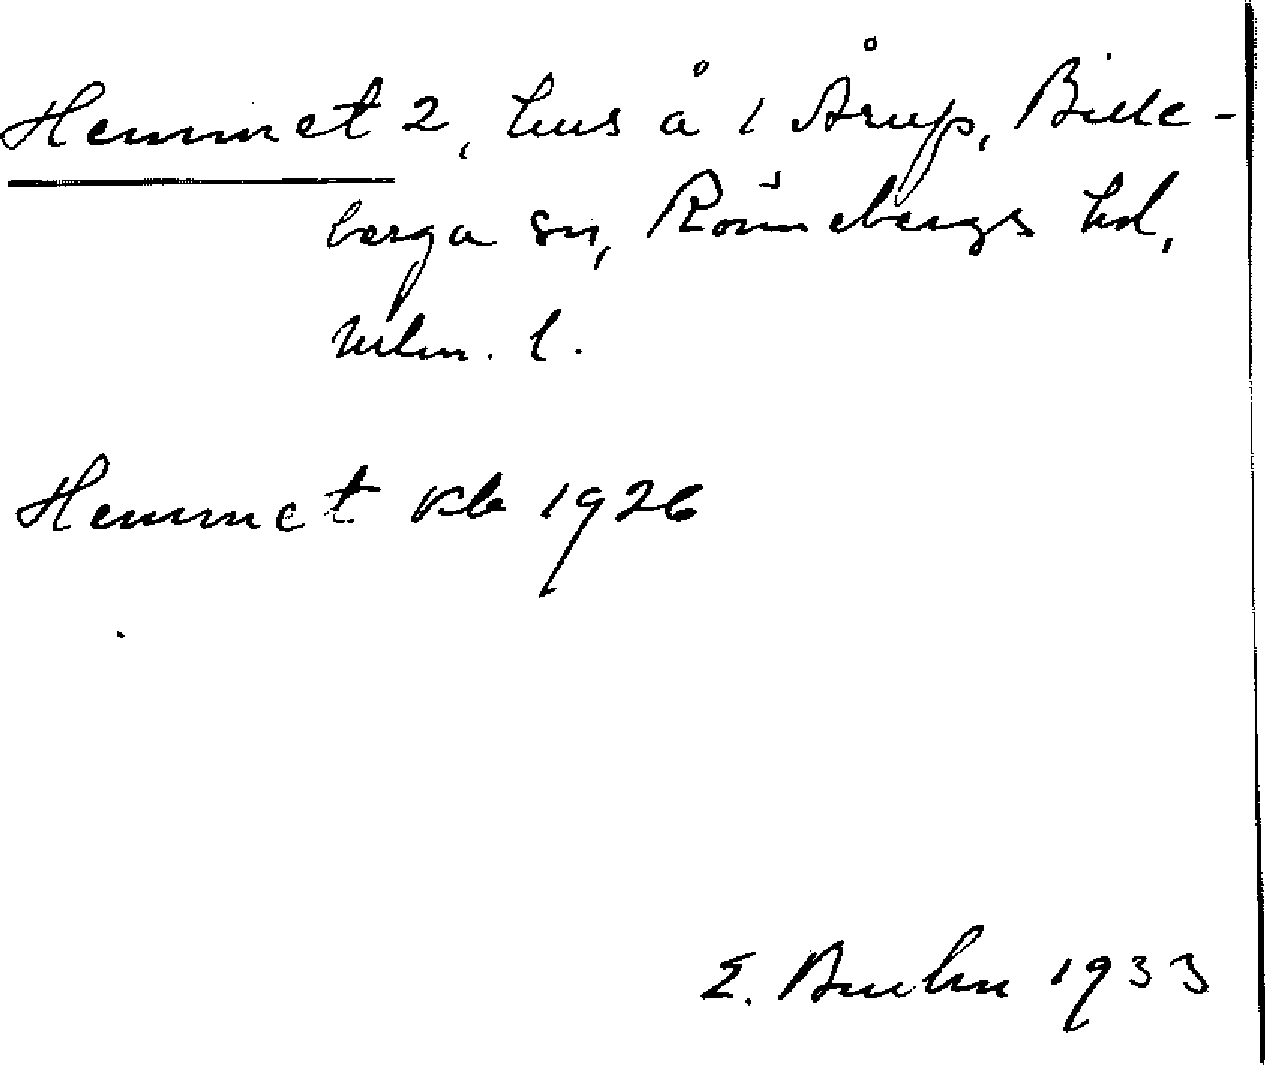 Hemmet 2, hus å 1 Årup, Bille-
berga sn, Rönnebergs hd,
Mlm. l.
Hemmet kb 1926
E. 1933